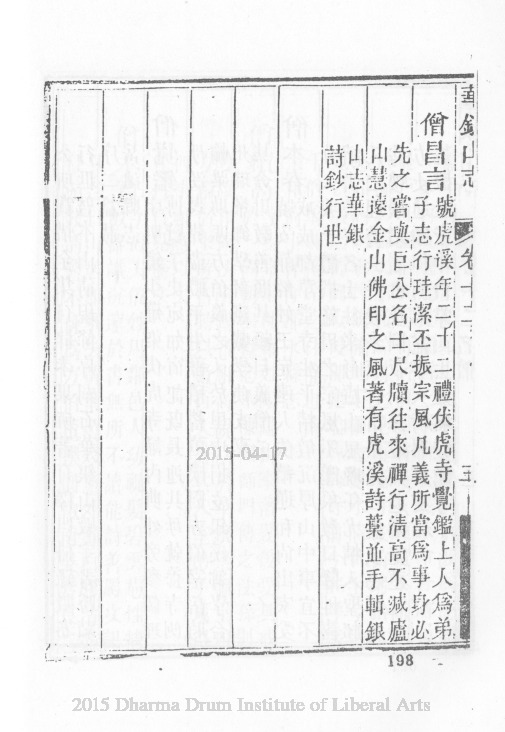 華銀山志 卷十二 五
僧昌言 號虎溪年二十二禮伏虎寺覺鑑上人為弟
子志行珪潔丕振宗風凡義所當為事身必
先之嘗與巨公名士尺牘往來禪行清高不減廬
山慧遠金山佛印之風著有虎溪詩藁並手輯銀
山志華銀
詩鈔行世
2015-04-17
198
2015 Dharma Drum Institute of Liberal Arts